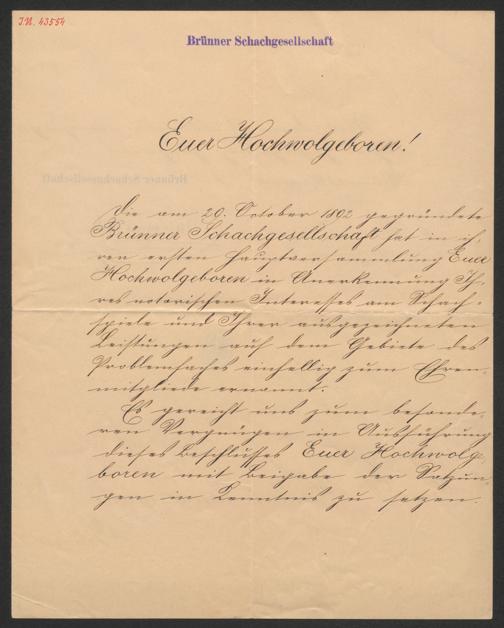 I.N. 43554
Brünner Schachgesellschaft
Euer Hochwolgeboren!
Die am 20. October 1892 gegründete
Brünner Schachgesellschaft hat in ih-
rer ersten Hauptversammlung Euer
Hochwolgeboren in Anerkennung Ih-
res notorischen Interesses am Schach-
spiele und Ihrer ausgezeichneten
Leistungen auf dem Gebiete des
Problemfaches einhellig zum Ehren-
mitgliede ernannt.
Es gereicht uns zum besonde-
ren Vergnügen in Ausführung
dieses Beschlusses Euer Hochwolge-
boren mit Beigabe der Satzun-
gen in Kenntnis zu setzen.